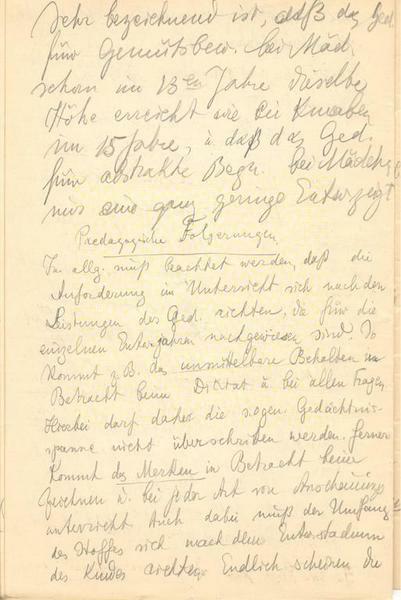 Sehr bezeichnend ist, daß das Ged.
für Gemütsbew. bei Mäd.
schon im 13ten Jahre dieselbe
Höhe erreicht wie bei Knaben
im 15 Jahre, u. daß das Ged.
für abstrakte Begr. bei Mädchen
nur eine ganz geringe Entw. zeigt
Paedagogische Folgerungen.
Im allg. muß beachtet werden, daß die
Anforderung im Unterricht sich nach den
Leistungen des Ged. richten, die für die
einzelnen Entw. jahren nachgewiesen sind. So
kommt z.B. das unmittelbare Behalten in
Betracht beim Diktat u. bei allen Fragen.
Hierbei darf daher die sogen. Gedächtnis-
spanne nicht überschritten werden. Ferner
kommt das Merken in Betracht beim
Zeichnen u. bei jeder Art von Anschauungs
unterricht Auch dabei muß der Umfang
des Stoffes sich nach dem Entw. stadium
des Kindes richten. Endlich scheinen die